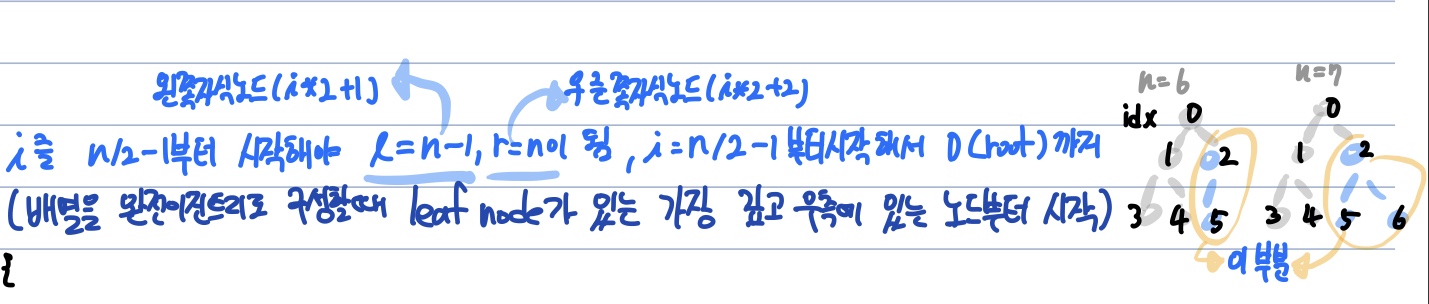 왼쪽자식노드(i*2+1) 우른쪽자식노드(i*2+2)
i를 n/2-1부터 시작해야 l=n-1, r=n이 됨, i=n/2-1부터시작해서 0(root)까지
(배열을 완전이진트리로 구성할때 leaf node가 있는 가장 깊고 우측에 있는 노드부터 시작)
{
n=6
idx 0
1 2
3 4 5
n=7
0
1 2
3 4 5 6
이 부분